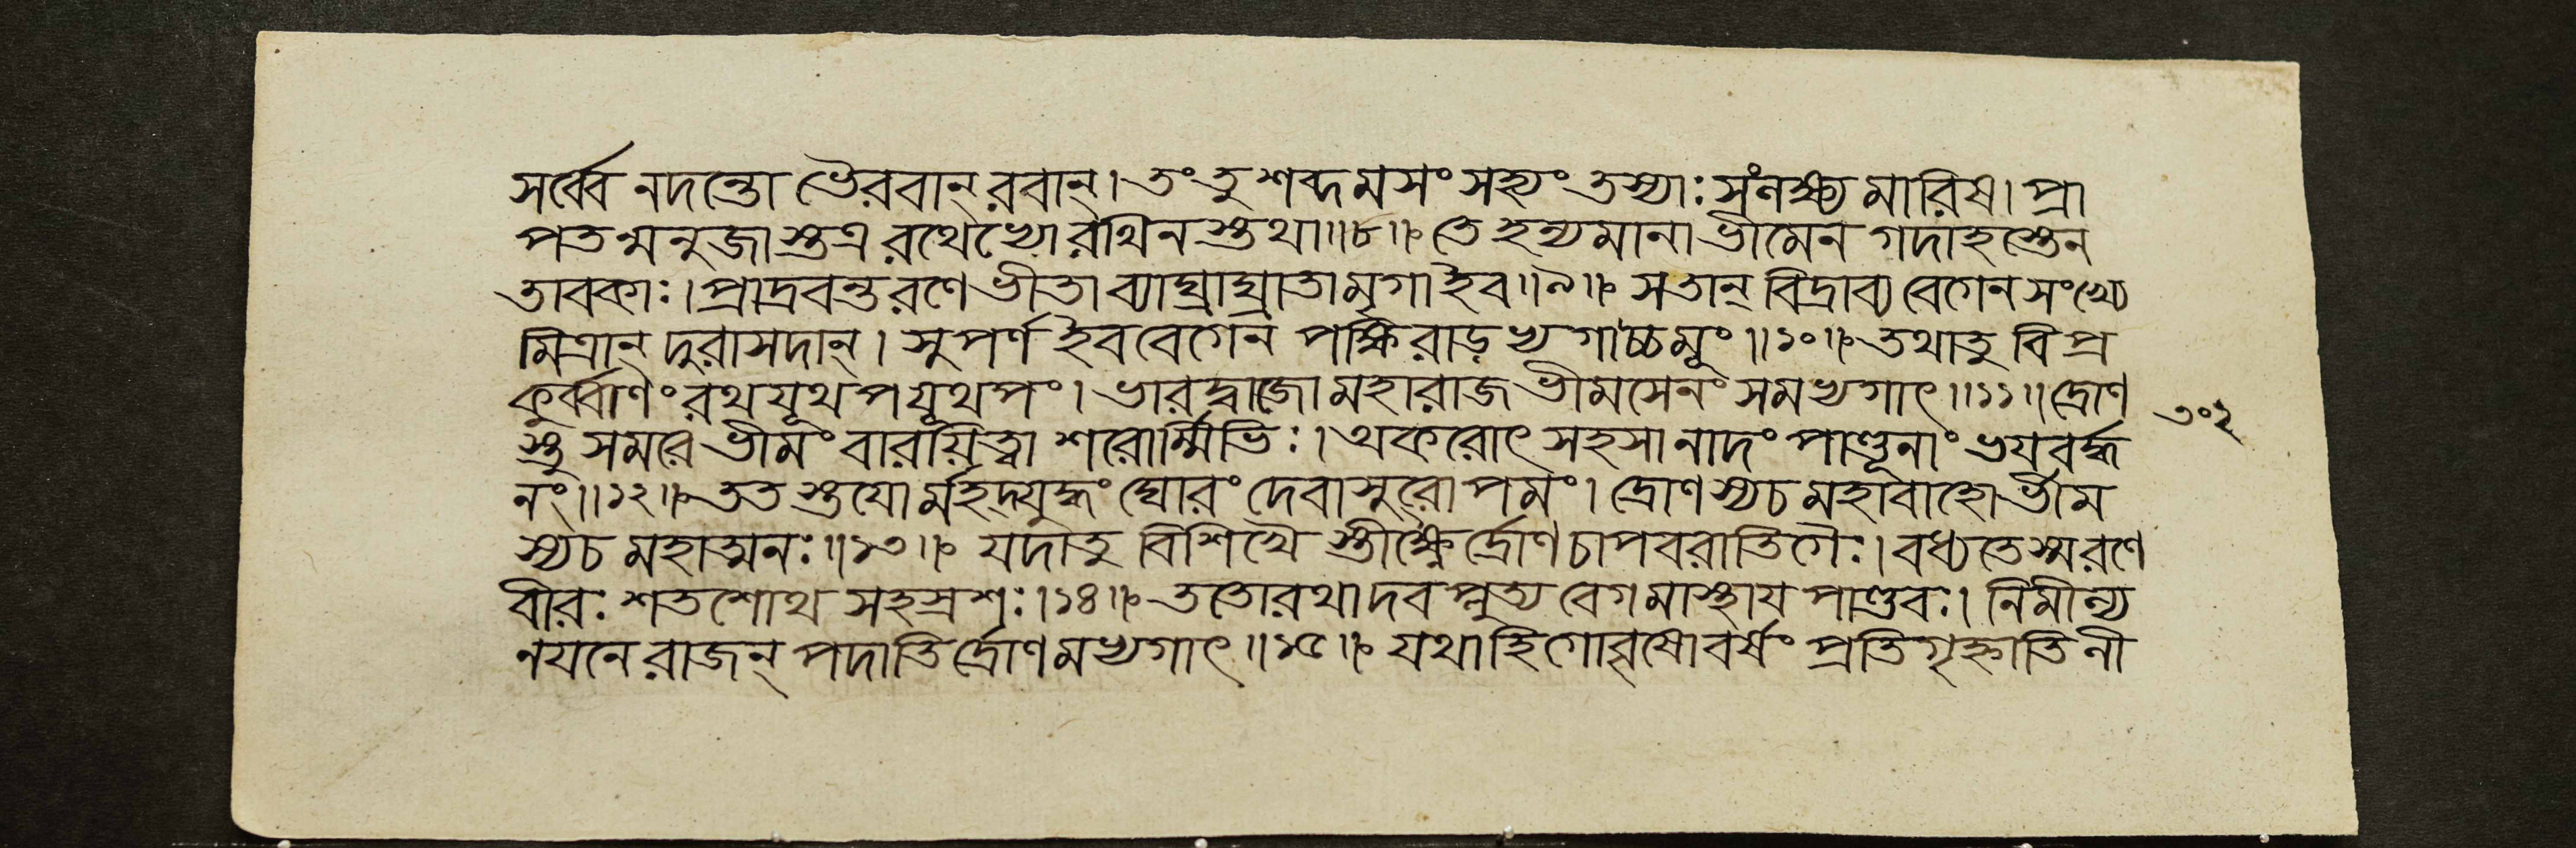 সর্ব্বে নদন্তো ভৈরবান্ রবান্। তং তু শব্দমসং সহ্যং তস্যাঃ সংলক্ষ্য মারিষ। প্রা
পতন্মনুজাস্তত্র রথেভ্যো রথিনস্তথা॥৮॥ তে হন্যমানা ভীমেন গদাহস্তেন
তাবকাঃ। প্রাদ্রবন্ত রণে ভীতা ব্যাঘ্রাঘ্রাতা মৃগা ইব॥৯॥ স তান্ বিদ্রাব্য বেগেন সংখ্যে
মিত্রান্ দুরাসদান্। সুপর্ণ ইব বেগেন পক্ষিরাড়ভ্যগাচ্চমূং॥১০॥ তথা তু বিপ্র
কুর্ব্বাণং রথযূথপযূথপং। ভারদ্বাজো মহারাজ ভীমসেনং সমভ্যগাৎ॥১১॥ দ্রোণ
স্তু সমরে ভীমং বারয়িত্বা শরোর্ম্মিভিঃ। অকরোৎ সহসা নাদং পাণ্ডূনাং ভয়বর্দ্ধ
নং॥১২॥ ততস্তয়োর্মহদ্যুদ্ধং ঘোরং দেবাসুরোপমং। দ্রোণস্য চ মহাবাহোর্ভীম
স্য চ মহাত্মনঃ॥১৩॥ যদা তু বিশিখৈস্তীক্ষ্ণৈর্দ্রোণচাপবরাতিগৈঃ। বধ্যতে স্ম রণে
বীরঃ শতশোথ সহস্রশঃ।১৪॥ ততো রথাদবপ্লুত্য বেগমাস্থায় পাণ্ডবঃ। নিমীল্য
নয়নে রাজন্ পদাতির্দ্রোণমভ্যগাৎ॥১৫॥ যথা হি গোবৃষো বর্ষং প্রতিগৃহ্ণাতি লী
৩০২